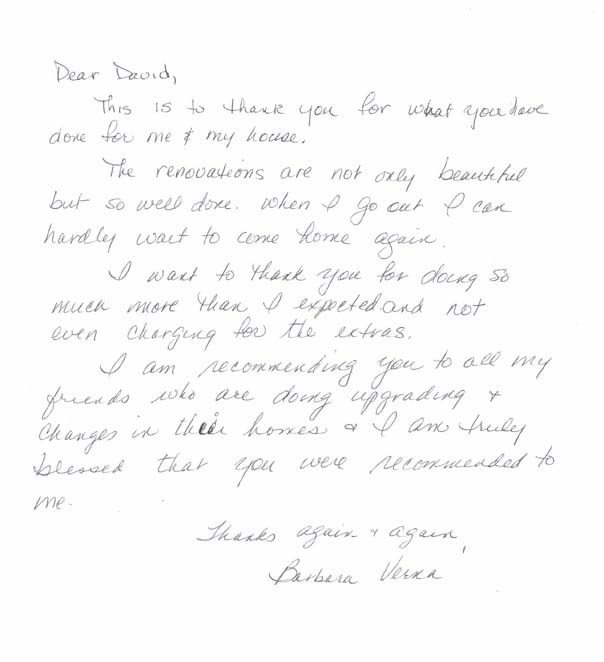 Dear David,
This is to thank you for what you have
done for me & my house.
The renovations are not only beautiful
but so well done. When I go out I can
hardly wait to come home again.
I want to thank you for doing so
much more than I expected and not
even charging for the extras.
I am recommending you to all my
friends who are doing upgrading &
changes in their homes & I am truly
blessed that you were recommended to
me.
Thanks again & again,
Barbara Verna